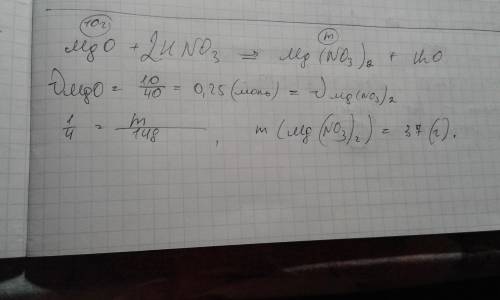 10г m
MgO + 2HNO₃ = Mg(NO₃)₂ + H₂O
νMgO = 10/40 = 0,25 (моль) = νMg(NO₃)₂
1/4 = m/148 , m(Mg(NO₃)₂) = 37(г).